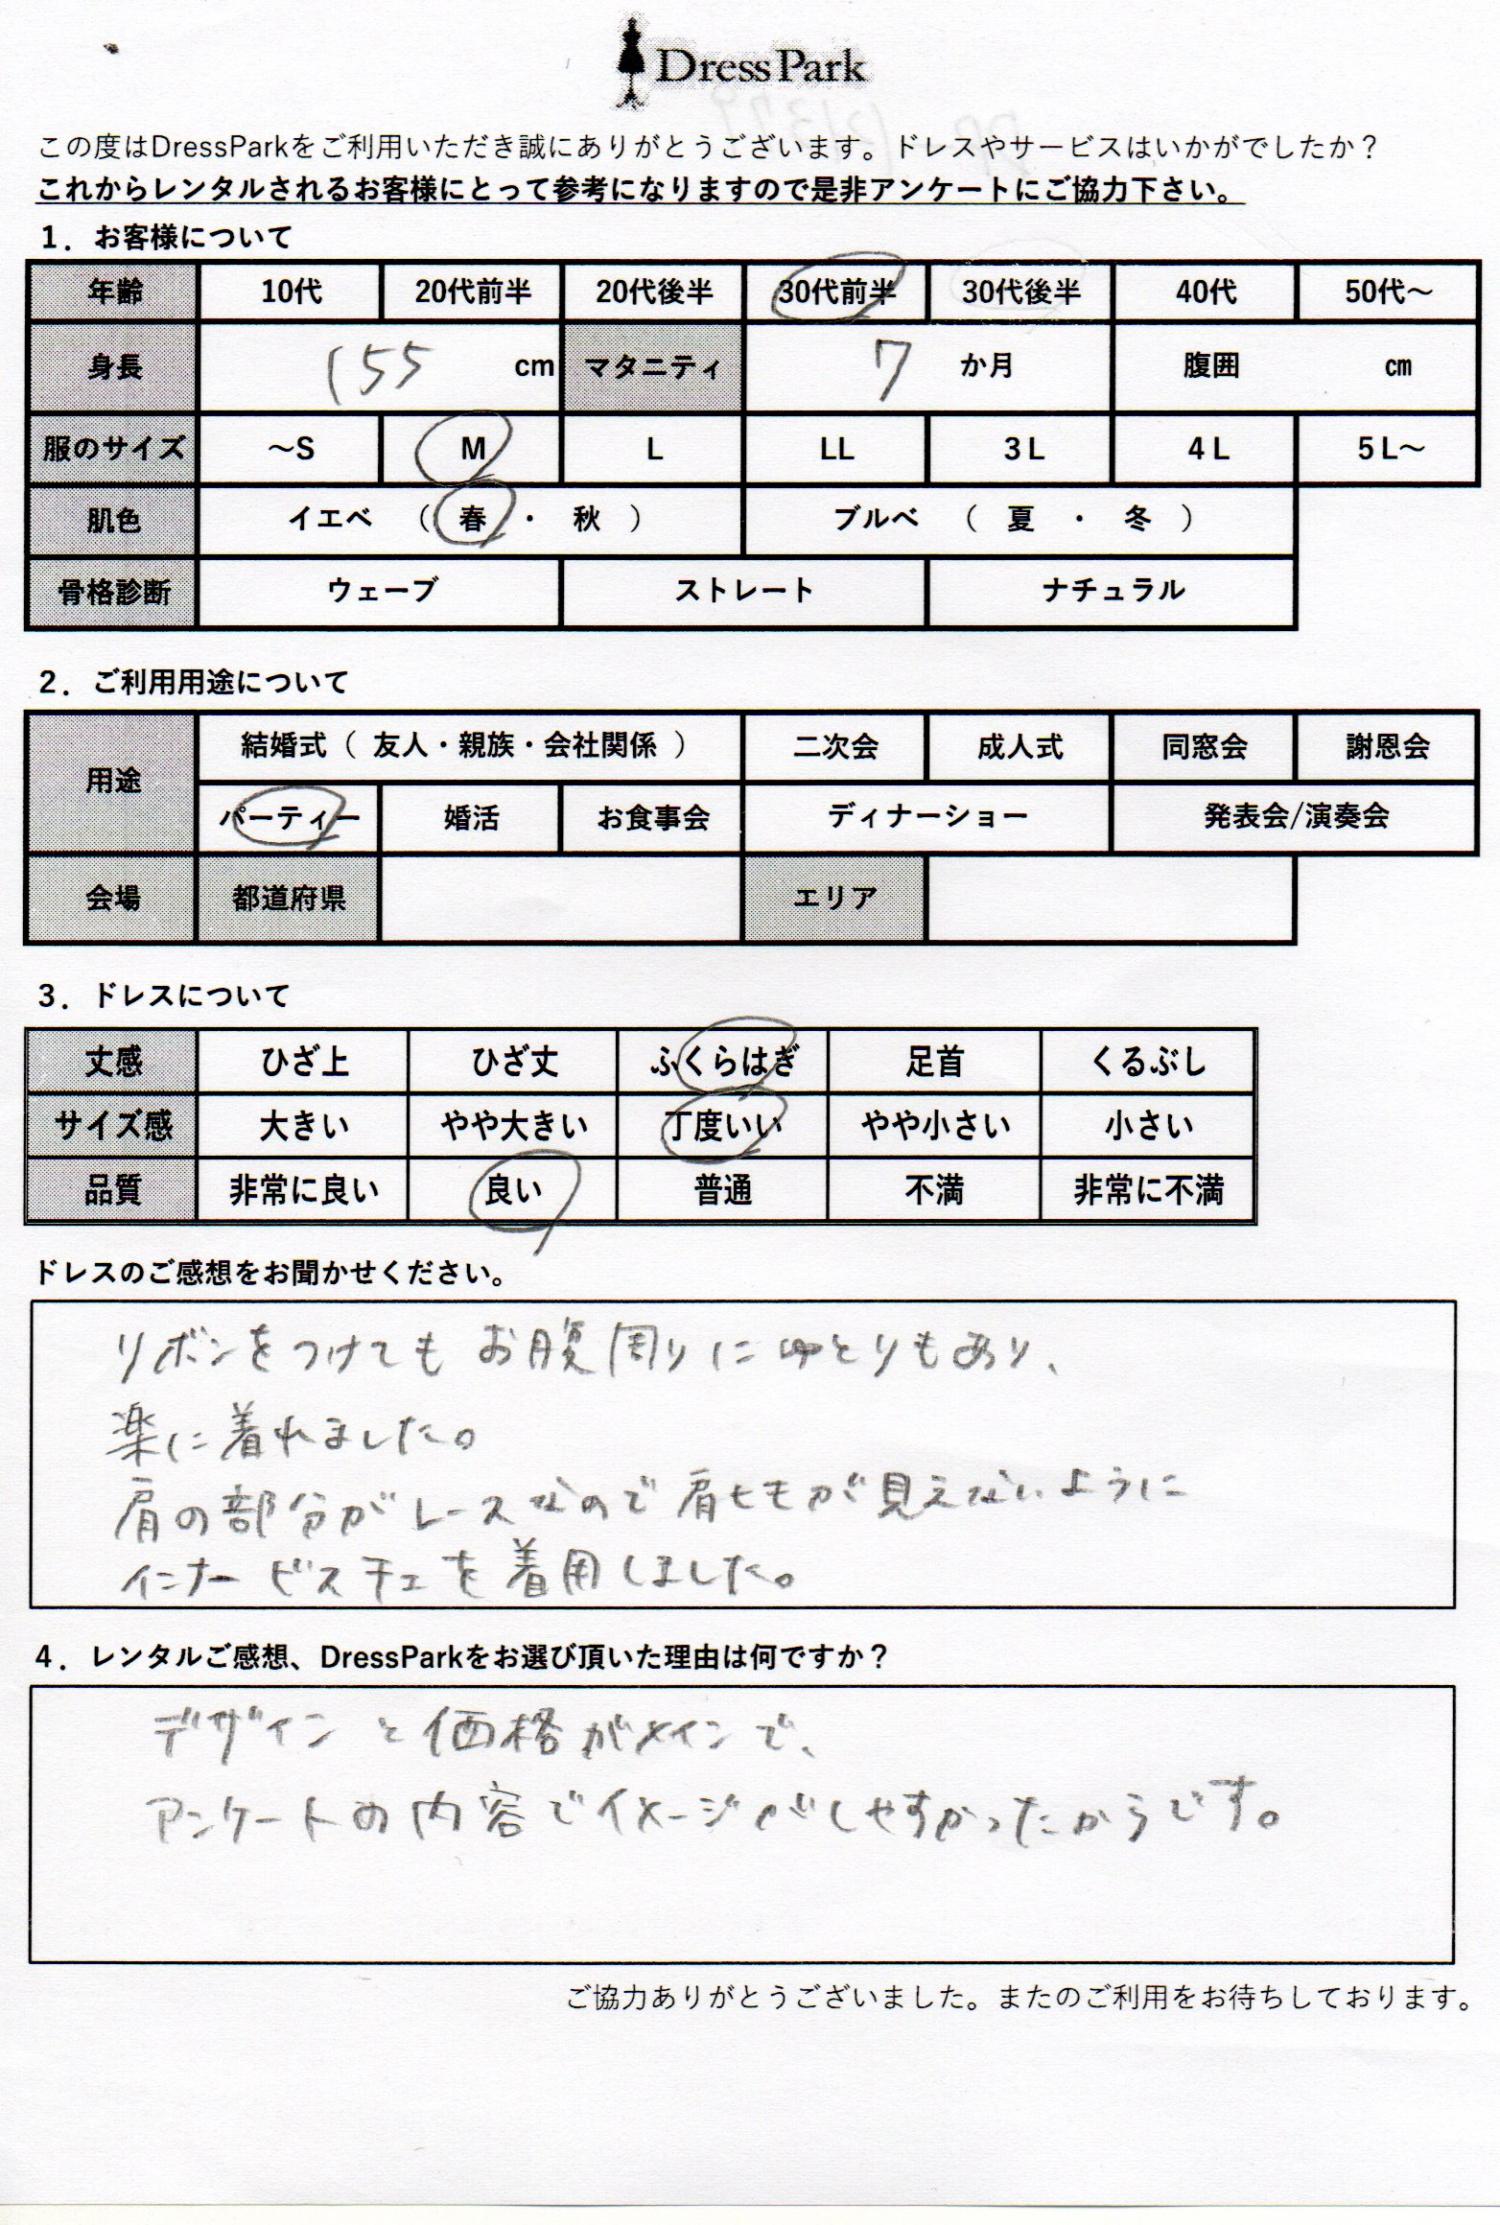 DressPark
この度はDressParkをご利用いただき誠にありがとうございます。ドレスやサービスはいかがでしたか？
これからレンタルされるお客様にとって参考になりますので是非アンケートにご協力下さい。
1．お客様について
年齢 10代 20代前半 20代後半 30代前半 30代後半 40代 50代～
身長 155 cm マタニティ 7 か月 腹囲 ㎝
服のサイズ ～S M L LL 3L 4L 5L～
肌色 イエベ （ 春 ・ 秋 ） ブルベ （ 夏 ・ 冬 ）
骨格診断 ウェーブ ストレート ナチュラル
2．ご利用用途について
用途 結婚式（ 友人・親族・会社関係 ） 二次会 成人式 同窓会 謝恩会
パーティー 婚活 お食事会 ディナーショー 発表会/演奏会
会場 都道府県 エリア
3．ドレスについて
丈感 ひざ上 ひざ丈 ふくらはぎ 足首 くるぶし
サイズ感 大きい やや大きい 丁度いい やや小さい 小さい
品質 非常に良い 良い 普通 不満 非常に不満
ドレスのご感想をお聞かせください。
リボンをつけてもお腹周りにゆとりもあり、
楽に着れました。
肩の部分がレースなので肩ヒモが見えないように
インナービスチェを着用しました。
4．レンタルご感想、DressParkをお選び頂いた理由は何ですか？
デザインと価格がメインで、
アンケートの内容でイメージがしやすかったからです。
ご協力ありがとうございました。またのご利用をお待ちしております。